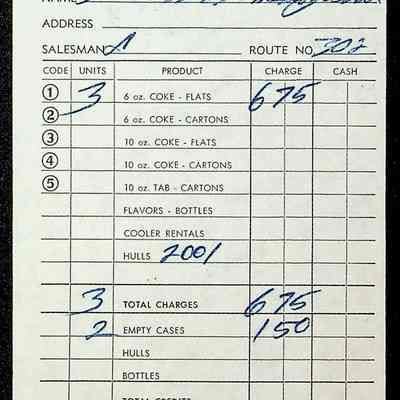 NAME
ADDRESS
SALESMAN A ROUTE NO. 302
CODE UNITS PRODUCT CHARGE CASH
① 3 6 oz. COKE - FLATS 675
② 6 oz. COKE - CARTONS
③ 10 oz. COKE - FLATS
④ 10 oz. COKE - CARTONS
⑤ 10 oz. TAB - CARTONS
FLAVORS - BOTTLES
COOLER RENTALS
HULLS 2001
3 TOTAL CHARGES 675
2 EMPTY CASES 150
HULLS
BOTTLES
TOTAL CREDITS